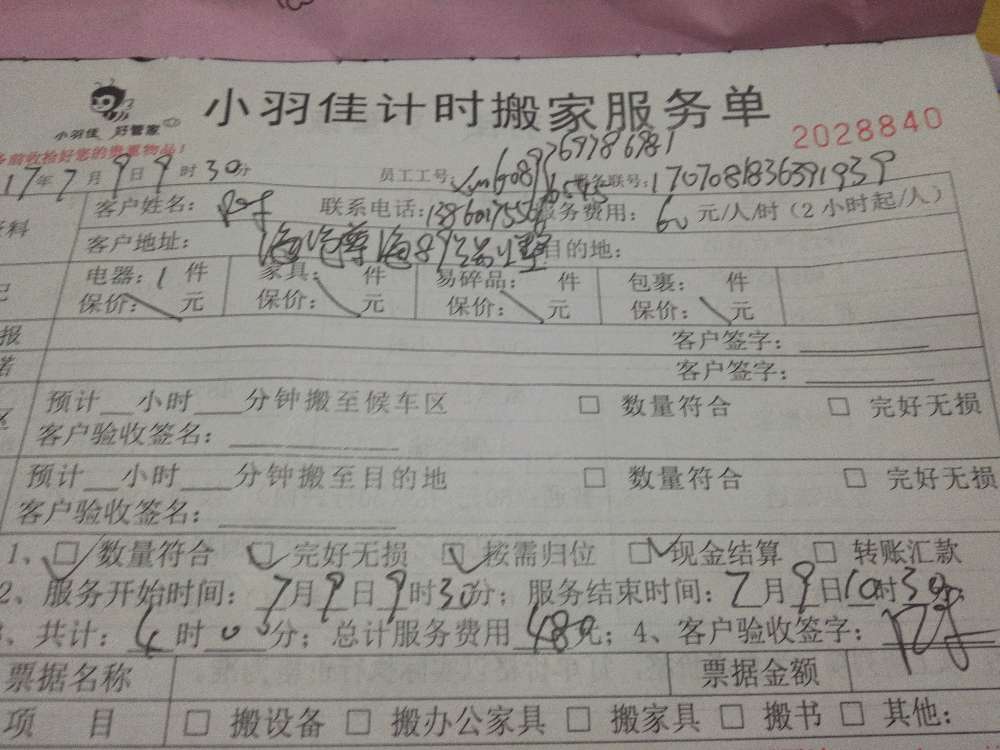 小羽佳计时搬家服务单
小羽佳 好管家
2028840
务前收拾好您的贵重物品!
17年7月9日9时30分 员工工号: 服务联号:1707081836391939
客户姓名: 联系电话: 服务费用:60元/人/时(2小时起/人)
客户地址: 目的地:
电器:1件 家具: 件 易碎品: 件 包裹: 件
保价: 元 保价: 元 保价: 元 保价: 元
客户签字:
客户签字:
预计__小时___分钟搬至候车区 □ 数量符合 □ 完好无损
客户验收签名:
预计__小时___分钟搬至目的地 □ 数量符合 □ 完好无损
客户验收签名:
1、☑数量符合 ☑完好无损 ☑按需归位 ☑现金结算 □ 转账汇款
2、服务开始时间:7月9日9时30分;服务结束时间:7月9日10时30分;
共计:4时00分;总计服务费用480元;4、客户验收签字:
票据名称 票据金额
项 目 □ 搬设备 □ 搬办公家具 □ 搬家具 □ 搬书 □ 其他: